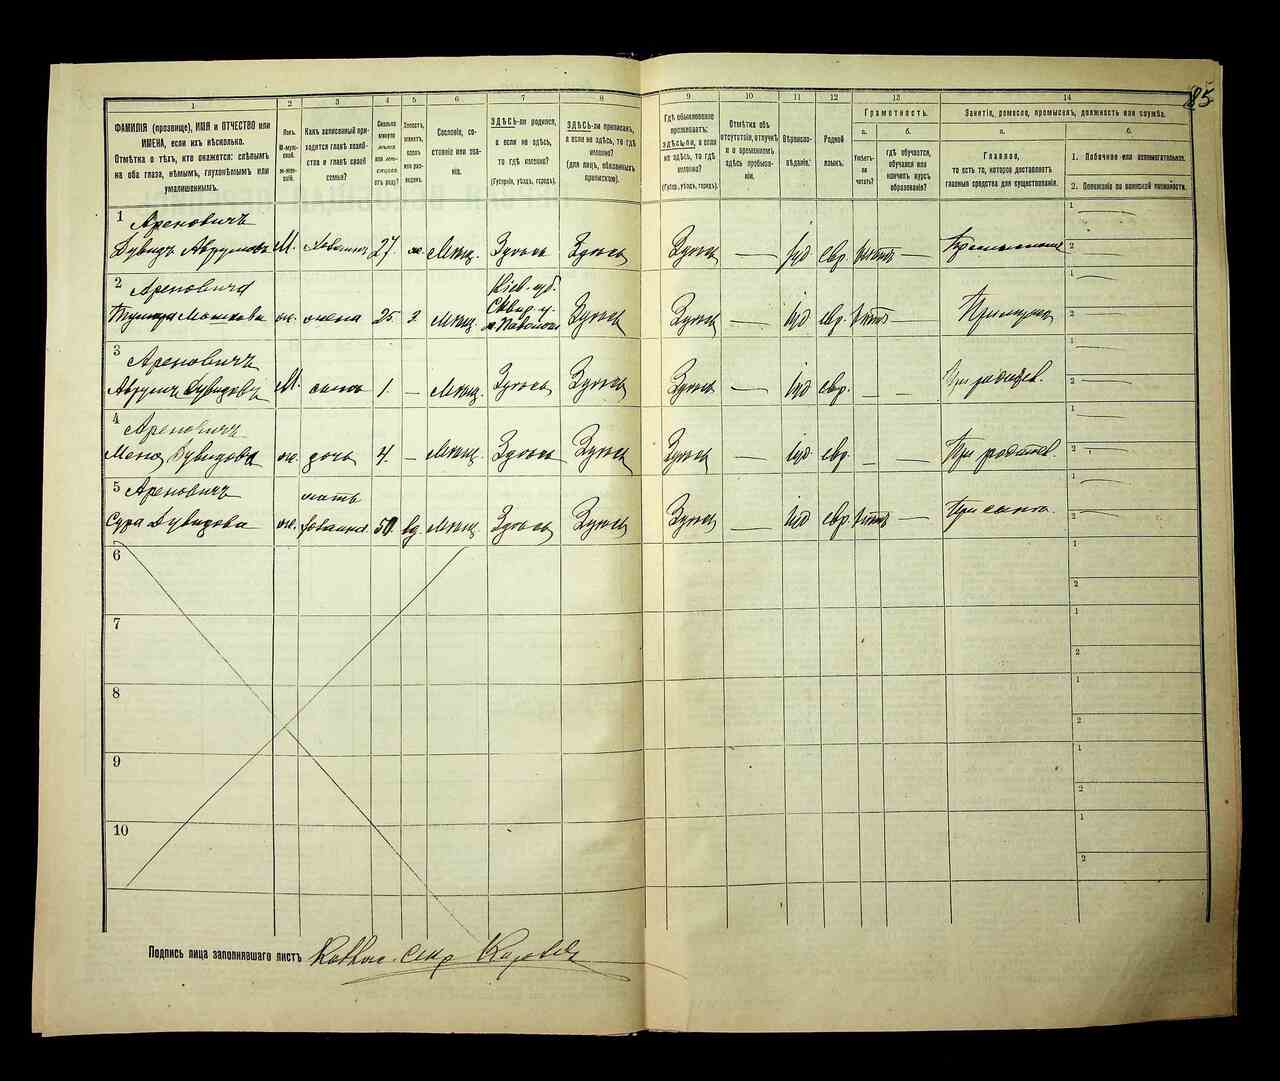 85
1
2
3
4
5
6
7
8
9
10
11
12
13
14
ФАМИЛІЯ (прозвище), ИМЯ и ОТЧЕСТВО или
ИМЕНА, если ихъ нѣсколько.
Отмѣтка о тѣхъ, кто окажется: слѣпымъ
на оба глаза, нѣмымъ, глухонѣмымъ или
умалишеннымъ.
Полъ.
М-муж-
ской.
Ж-жен-
скій.
Какъ записанный при-
ходится главѣ хозяй-
ства и главѣ своей
семьи?
Сколько
минуло
лѣтъ
или мѣ-
сяцевъ
отъ роду?
Холостъ,
женатъ,
вдовъ
или раз-
веденъ.
Сословіе, со-
стояніе или зва-
ніе.
ЗДѢСЬ-ли родился,
а если не здѣсь,
то гдѣ именно?
(Губернія, уѣздъ, городъ).
ЗДѢСЬ-ли приписанъ,
а если не здѣсь, то гдѣ
именно?
(для лицъ, обязанныхъ
припискою).
Гдѣ обыкновенно
проживаетъ:
ЗДѢСЬ ЛИ, а если
не здѣсь, то гдѣ
именно?
(Губ., уѣздъ, городъ).
Отмѣтка объ
отсутствіи, отлучкѣ
и о временномъ
здѣсь пребыва-
ніи.
Вѣроиспо-
вѣданіе.
Родной
языкъ.
Грамотность.
а.
б.
Умѣетъ-
ли
читать?
гдѣ обучается,
обучался или
кончилъ курсъ
образованія?
Занятіе, ремесло, промыселъ, должность или служба.
а.
б.
Главное,
то есть то, которое доставляетъ
главныя средства для существованія.
1. Побочное или вспомогательное.
2. Положеніе по воинской повинности.
1 Ареновичъ
Дувидъ Аврумовъ М. хозяинъ 27 ж. Мѣщ. Здѣсь Здѣсь Здѣсь — іуд евр. — 1 2
2 Ареновичъ
Мошкова ж. жена 25 з Мѣщ. Кіев. губ. Сквир. у. Здѣсь Здѣсь — іуд евр. 1 2
3 Ареновичъ
Аврумъ Дувидовъ М. сынъ 1 — Мѣщ. Здѣсь Здѣсь Здѣсь — іуд евр. — — При родител. 1 2
4 Ареновичъ
Дувидова ж. дочь 4. — Мѣщ. Здѣсь Здѣсь Здѣсь — іуд евр. — — При родител. 1 2
5 Ареновичъ мать
Сура Дувидова ж. хозяина 50 вд. Мѣщ. Здѣсь Здѣсь Здѣсь — іуд евр. — При сынѣ. 1 2
6 1 2
7 1 2
8 1 2
9 1 2
10 1 2
Подпись лица заполнявшаго листъ